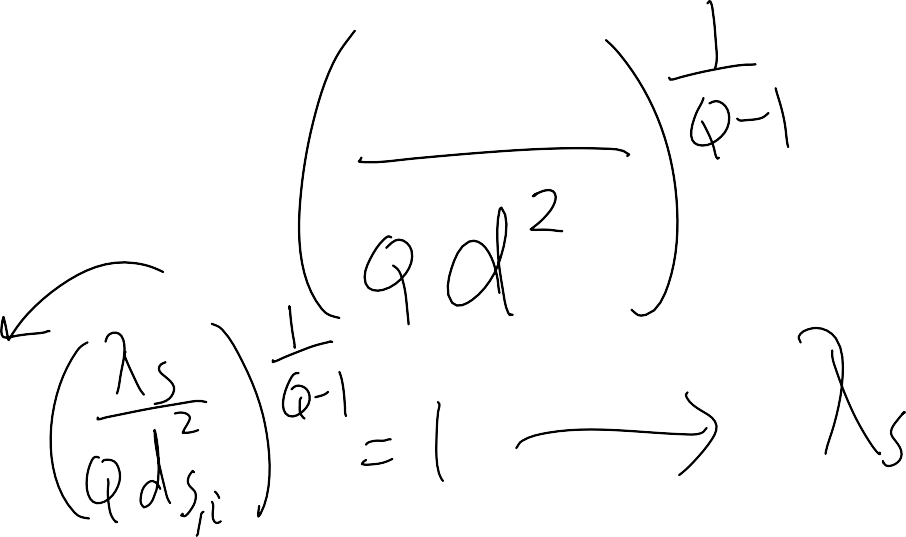 ( / Q d^2)^{1/(Q-1)}
(λ_s / (Q d_{s,i}^2))^{1/(Q-1)} = 1 → λ_s